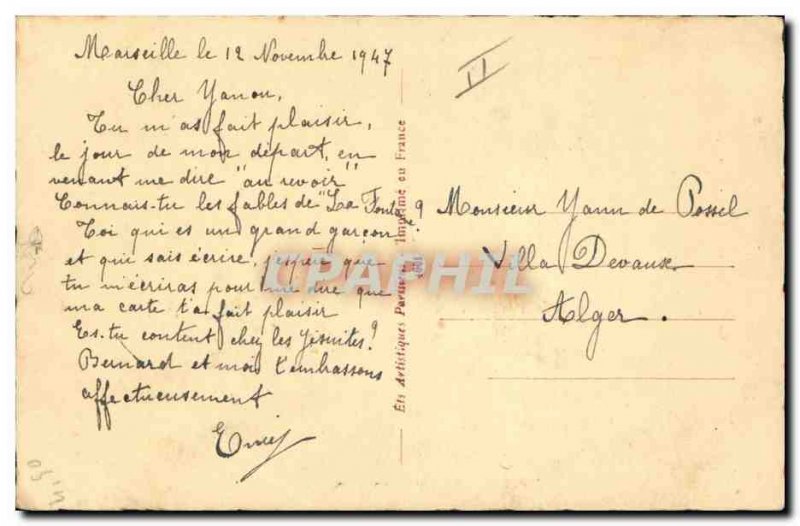 Marseille le 12 Novembre 1947
Cher Yanou,
Tu m'as fait plaisir,
le jour de mon départ, en
venant me dire "au revoir"
Connais-tu les fables de "La Fontaine?
Toi qui es un grand garçon
et qui sais écrire, j'espère que
tu m'écriras pour me dire que
ma carte t'a fait plaisir
Es-tu content chez les Jésuites?
Bernard et moi t'embrassons
affectueusement
II
Ets Artistiques Imprimé en France
Monsieur Yann de Possel
Villa Devaux
Alger.
CPAPHIL